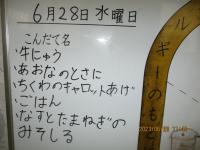 6月28日 水曜日
こんだて名
・牛にゅう
・あおなのとさに
・ちくわのキャロットあげ
・ごはん
・なすとたまねぎの
みそしる
ルギーのもと